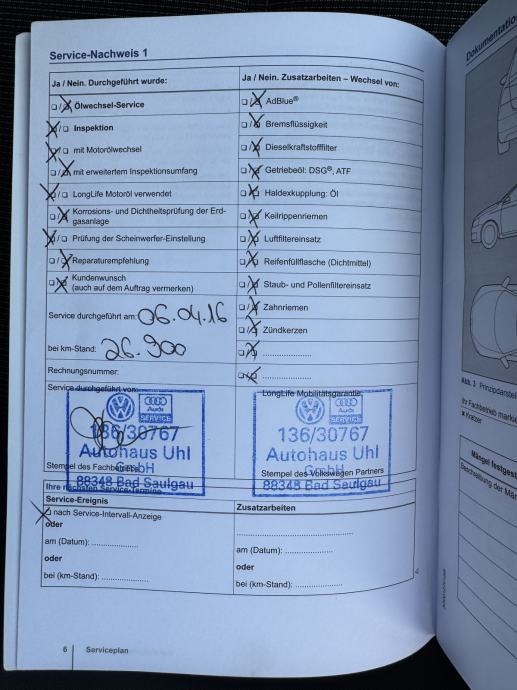 Service-Nachweis 1
Ja / Nein. Durchgeführt wurde:
☐/☒ Ölwechsel-Service
☒/☐ Inspektion
☒/☐ mit Motorölwechsel
☐/☒ mit erweitertem Inspektionsumfang
☒/☐ LongLife Motoröl verwendet
☐/☒ Korrosions- und Dichtheitsprüfung der Erd-
gasanlage
☒/☐ Prüfung der Scheinwerfer-Einstellung
☐/☒ Reparaturempfehlung
☐/☒ Kundenwunsch
(auch auf dem Auftrag vermerken)
Service durchgeführt am: 06.04.16
bei km-Stand: 26.900
Rechnungsnummer:
Ja / Nein. Zusatzarbeiten – Wechsel von:
☐/☒ AdBlue®
☐/☒ Bremsflüssigkeit
☐/☒ Dieselkraftstofffilter
☐/☒ Getriebeöl: DSG®, ATF
☐/☒ Haldexkupplung: Öl
☐/☒ Keilrippenriemen
☐/☒ Luftfiltereinsatz
☐/☒ Reifenfüllflasche (Dichtmittel)
☐/☒ Staub- und Pollenfiltereinsatz
☐/☒ Zahnriemen
☐/☒ Zündkerzen
☐/☒ ....................
☐/☒ ....................
Service durchgeführt von:
Audi
SERVICE
136/30767
Autohaus Uhl
GmbH
88348 Bad Saulgau
Stempel des Fachbetriebs
LongLife Mobilitätsgarantie:
Audi
SERVICE
136/30767
Autohaus Uhl
GmbH
88348 Bad Saulgau
Stempel des Volkswagen Partners
Ihre nächsten Service-Termine
Service-Ereignis
☒ nach Service-Intervall-Anzeige
oder
am (Datum): ....................
oder
bei (km-Stand): ....................
Zusatzarbeiten
....................
am (Datum): ....................
oder
bei (km-Stand): ....................
6 Serviceplan
Dokumentatio
Abb. 3 Prinzipdarstel
Ihr Fachbetrieb markie
x Kratzer
Mängel festgest
Beschreibung der Män